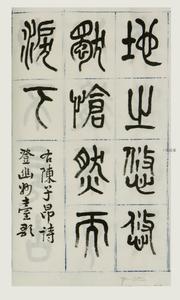 地之悠悠
獨愴然而
涙下
右陳子昂詩
登幽州臺歌